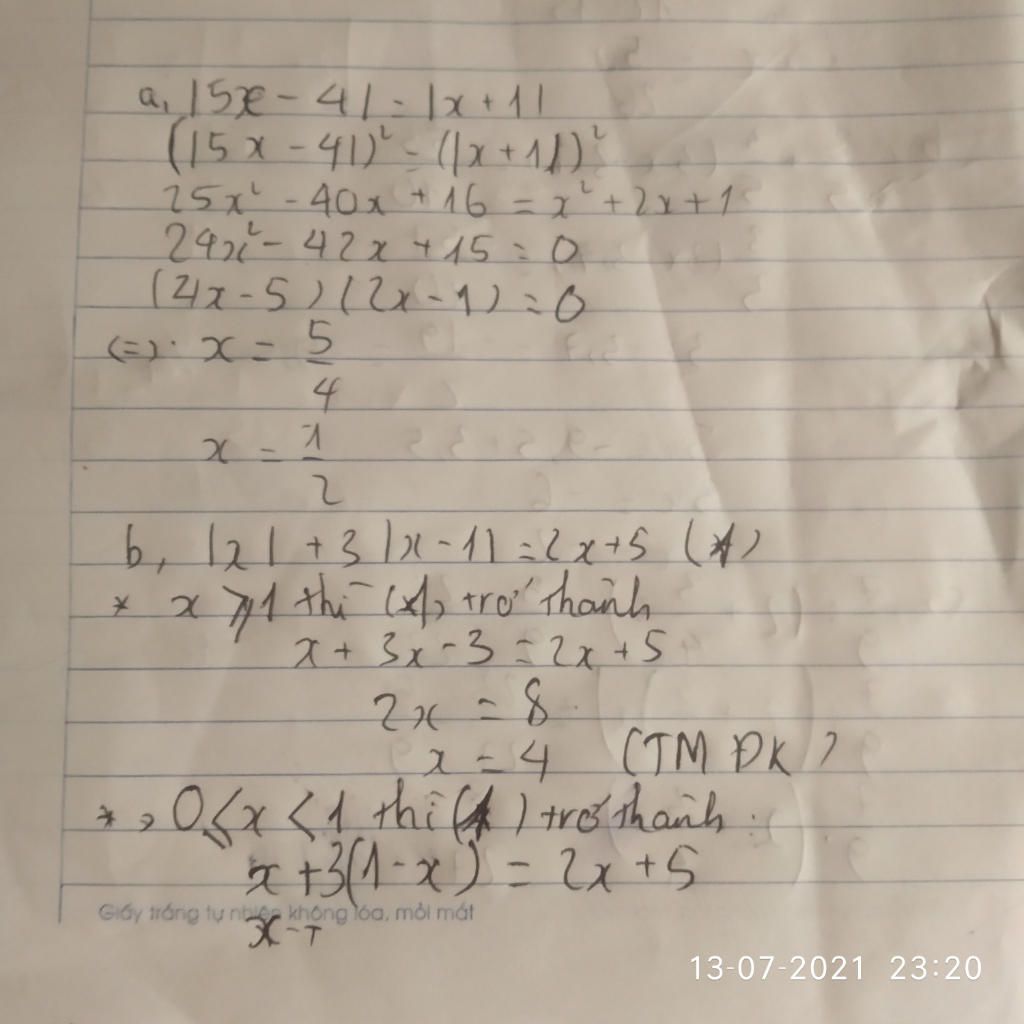 a, |5x - 4| = |x + 1|
(|5x - 4|)² = (|x + 1|)²
25x² - 40x + 16 = x² + 2x + 1
24x² - 42x + 15 = 0
(4x - 5)(2x - 1) = 0
(=) x = 5/4
x = 1/2
b, |x| + 3|x - 1| = 2x + 5 (1)
* x ⩾ 1 thì (1) trở thành
x + 3x - 3 = 2x + 5
2x = 8
x = 4 (TM ĐK)
* , 0 ≤ x < 1 thì (1) trở thành
x + 3(1 - x) = 2x + 5
Giấy trắng tự nhiên không lóa, mỏi mắt
x -
13-07-2021 23:20